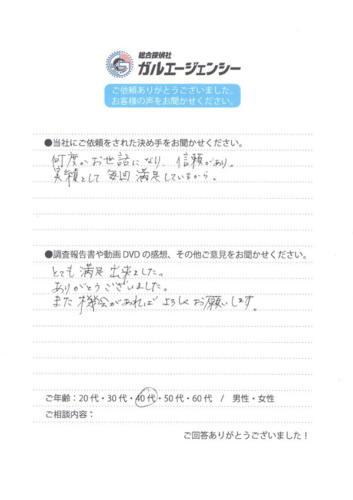 総合探偵社
ガルエージェンシー
ご依頼ありがとうございました。
お客様の声をお聞かせください。
●当社にご依頼をされた決め手をお聞かせください。
何度かお世話になり、信頼があり。
実績として毎回満足しているから。
●調査報告書や動画DVDの感想、その他ご意見をお聞かせください。
とても満足出来ました。
ありがとうございました。
また機会があればよろしくお願いします。
ご年齢：20代・30代・40代・50代・60代 / 男性・女性
ご相談内容：
ご回答ありがとうございました！